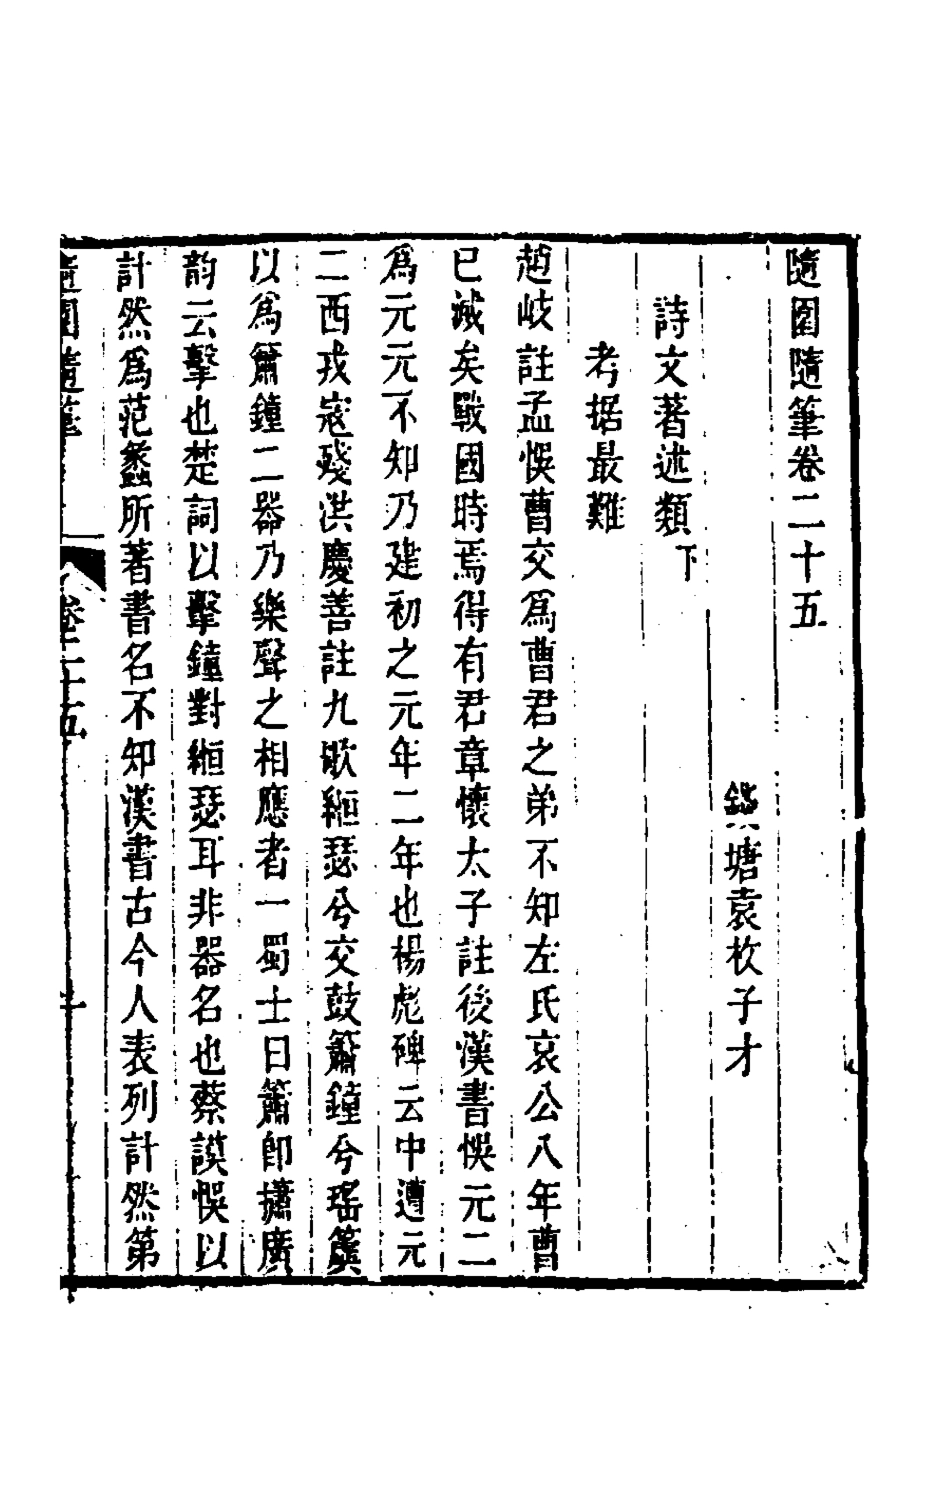 隨園隨筆卷二十五
錢塘袁枚子才
詩文著述類下
考据最難
趙岐註孟悞曹交爲曹君之弟不知左氏哀公八年曹
已滅矣戰國時焉得有君章懷太子註後漢書悞元二
爲元元不知乃建初之元年二年也楊彪碑云中遭元
二西戎寇殘洪慶善註九歌緪瑟兮交鼓簫鐘兮瑤簴
以爲簫鐘二器乃樂聲之相應者一蜀士曰簫卽㩋廣
韵云擊也楚詞以擊鐘對緪瑟耳非器名也蔡謨悞以
計然爲范蠡所著書名不知漢書古今人表列計然第
隨園隨筆
卷二十五
一